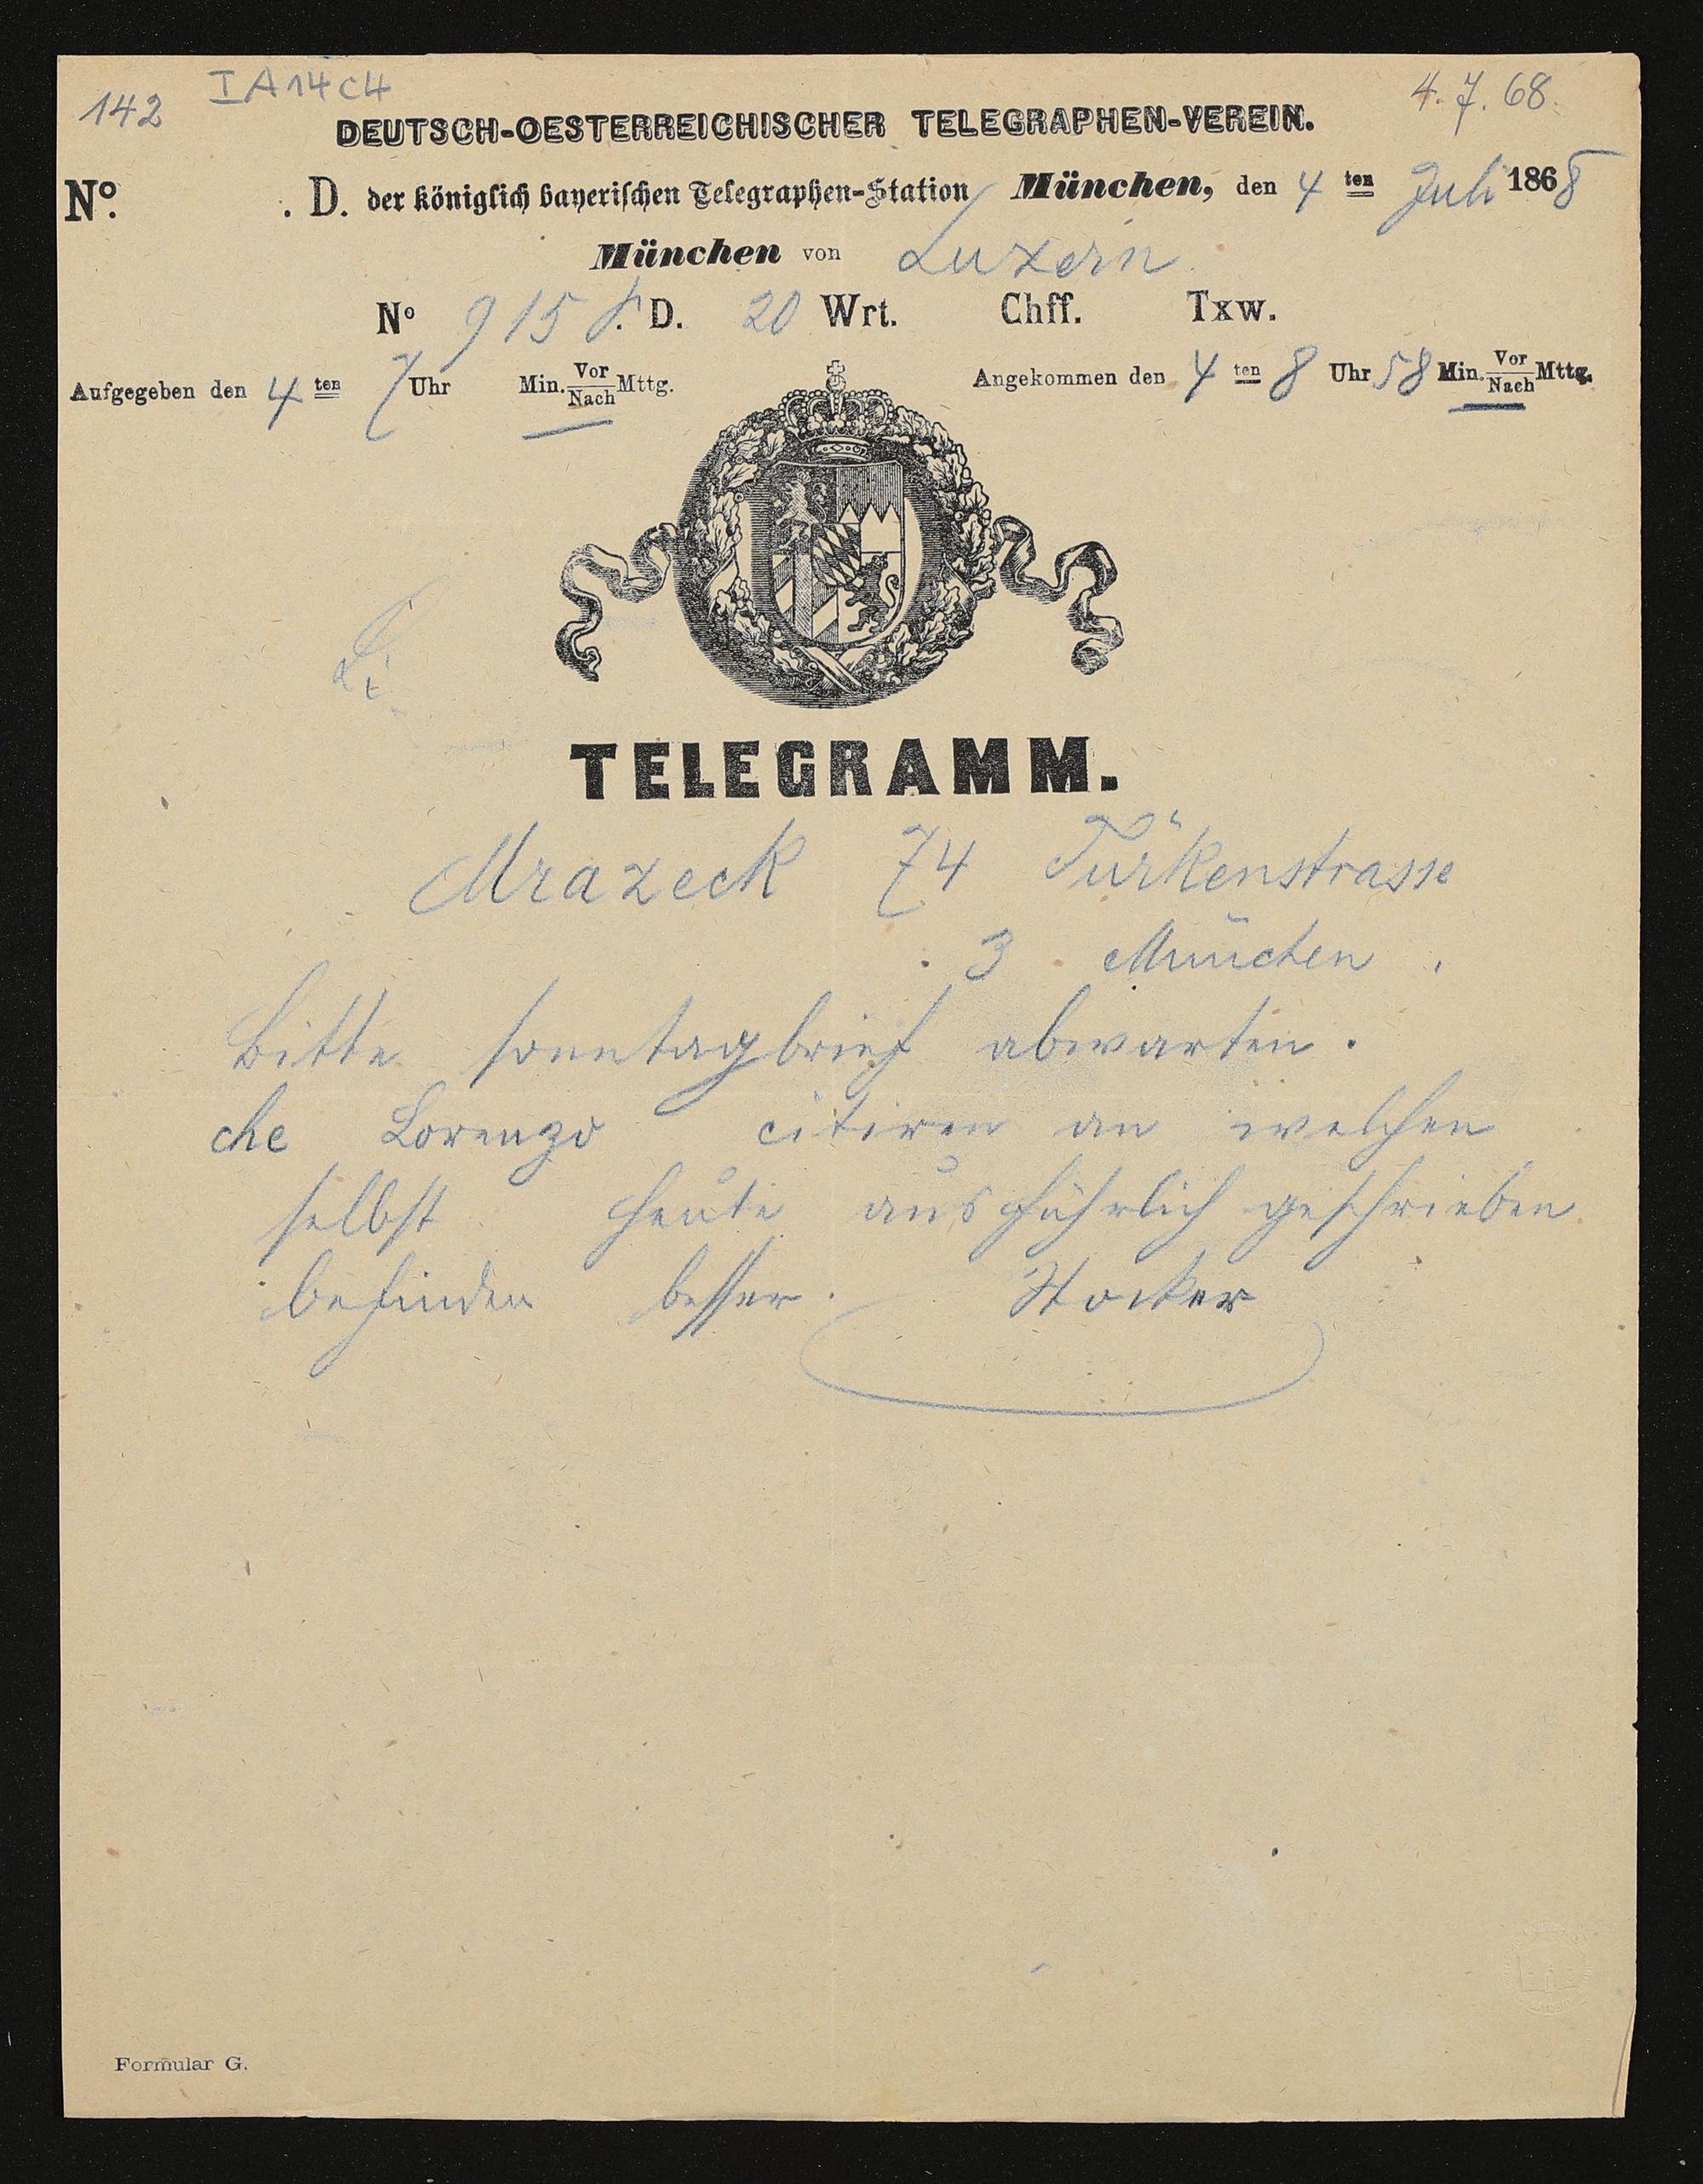 142 I A 14 C 4 4. 7. 68.
DEUTSCH-OESTERREICHISCHER TELEGRAPHEN-VEREIN.
No. . D. der königlich bayerischen Telegraphen-Station München, den 4 ten Juli 1868
München von Luzern
No 915 . D. 20 Wrt. Chff. Txw.
Aufgegeben den 4 ten 7 Uhr Min. Vor/Nach Mttg. Angekommen den 4 ten 8 Uhr 58 Min. Vor/Nach Mttg.
TELEGRAMM.
Mrazeck 74 Türkenstrasse
. 3 . München .
Bitte sonntagbrief abwarten .
che Lorenzo citiren an welchen
selbst heute ausführlich geschrieben
befinden besser . Stocker
Formular G.